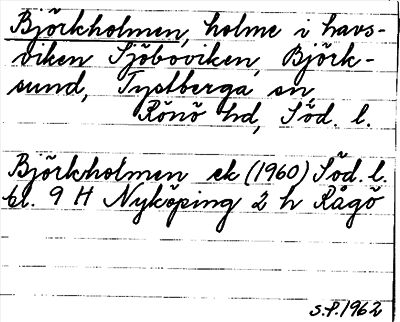 Björkholmen, holme i havs-
viken Sjöboviken, Björk-
sund, Tystberga sn
Rönö hd, Söd. l.
Björkholmen ek (1960) Söd. l.
bl. 9 H Nyköping 2 h Rågö
S.P. 1962